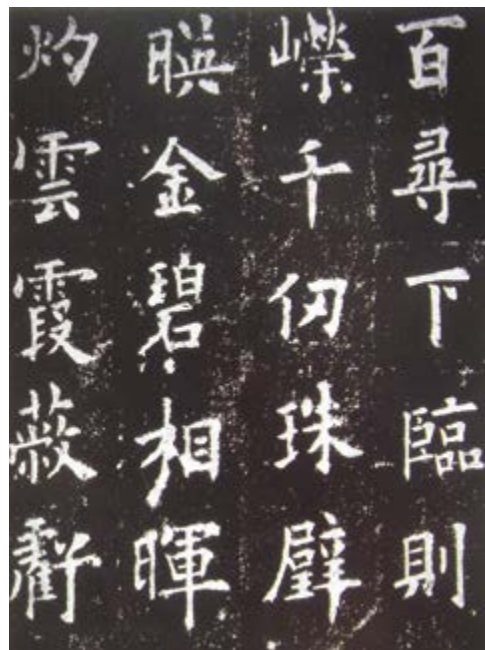 百尋下臨則
嶸千仞珠璧
暎金碧相暉
灼雲霞蔽虧